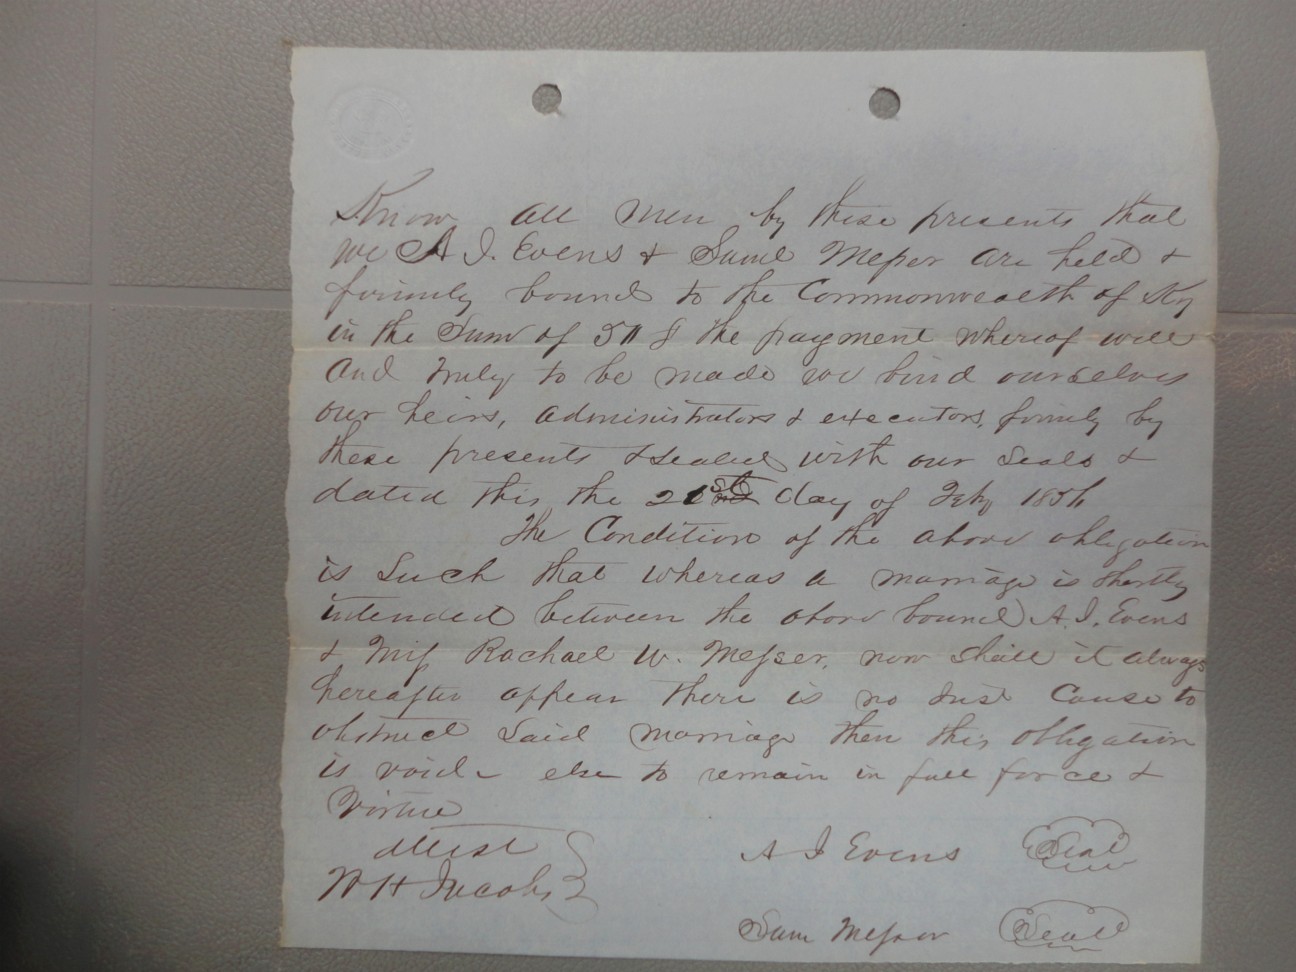 Know all men by these presents that
we A. J. Evens & Saml Messer are held &
firmly bound to the Commonwealth of Ky
in the Sum of the payment whereof well
and truly to be made we bind ourselves
our heirs, administrators & executors, firmly by
these presents & sealed with our seals &
dated this the 21st day of Feby
The Condition of the above obligation
is Such that whereas a marriage is shortly
intended between the above bound A. J. Evens
& Miss Rachael W. Messer, now shall it always
hereafter appear there is no Just Cause to
obstruct Said marriage then this obligation
is void else to remain in full force &
Virtue
Attest
W H Jacobs
A J Evens Seal
Sam Messer Seal